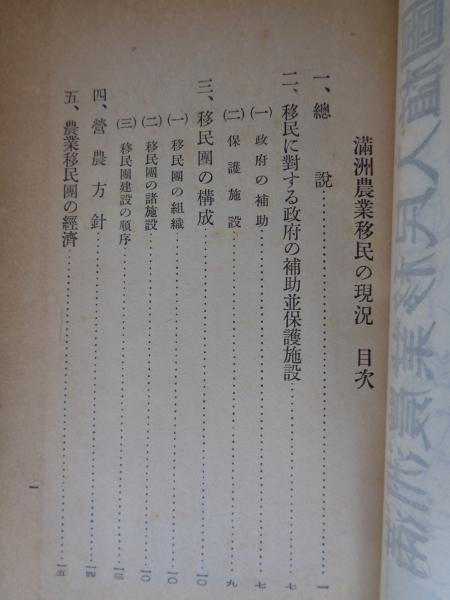 滿洲農業移民の現況　目次
一、總説……一
二、移民に對する政府の補助並保護施設……七
(一) 政府の補助……七
(二) 保護施設……九
三、移民團の構成……一〇
(一) 移民團の組織……一〇
(二) 移民團の諸施設……一〇
(三) 移民團建設の順序……一三
四、營農方針……一四
五、農業移民團の經濟……一五
一